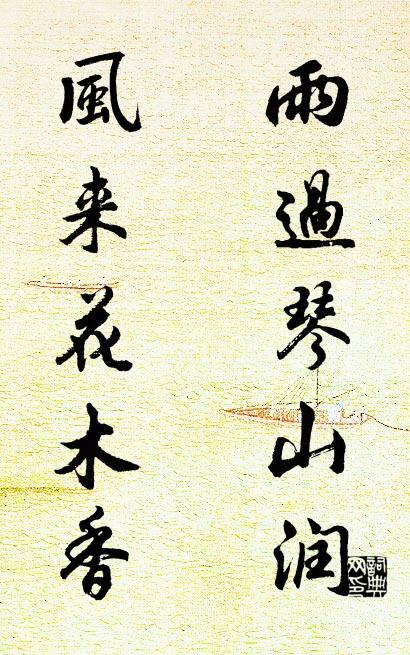 雨過琴山润
風来花木香
詞典网印